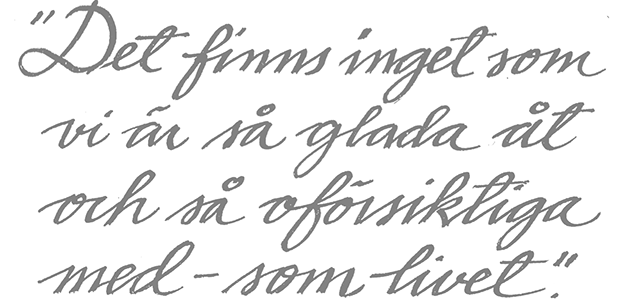 "Det finns inget som
vi är så glada åt
och så oförsiktiga
med – som livet."